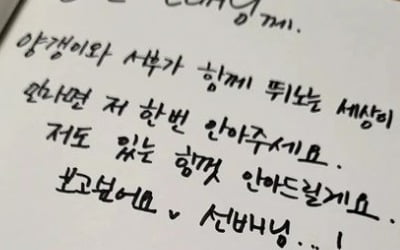 선배님께.
양갱이와 서후가 함께 뛰노는 세상이
온다면 저 한번 안아주세요.
저도 있는 힘껏 안아드릴게요.
보고싶어요 선배님...!